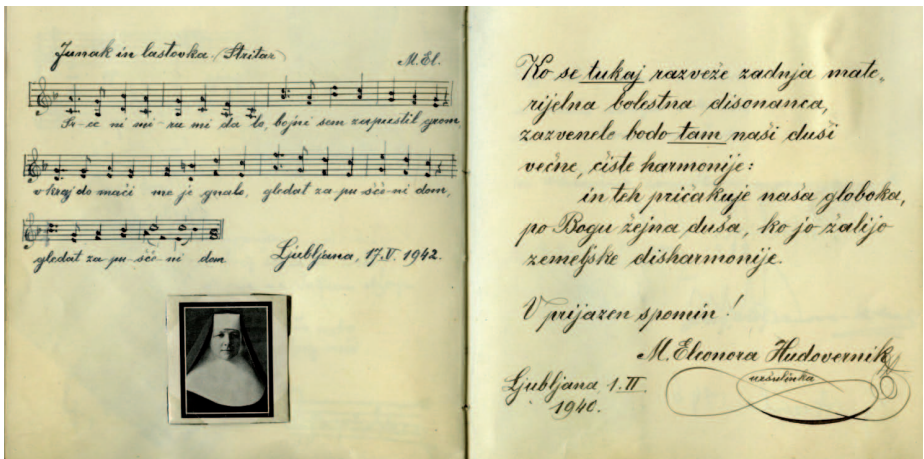 Junak in lastovka (Stritar)
M. El.
Sr-ce ni mi-ru mi da lo, bojni sem zapustil grom,
v kraj do mači me je gnalo, gledat za pu šče-ni dom,
gledat za pu-šče-ni dom
Ljubljana, 17. V. 1942.
Ko se tukaj razveže zadnja mate-
rijelna bolestna disonanca,
zazvenele bodo tam naši duši
večne, čiste harmonije:
in teh pričakuje naša globoka,
po Bogu žejna duša, ko jo žalijo
zemeljske disharmonije.
V prijazen spomin!
M. Eleonora Hudovernik
uršulinka
Ljubljana 1. III.
1940.